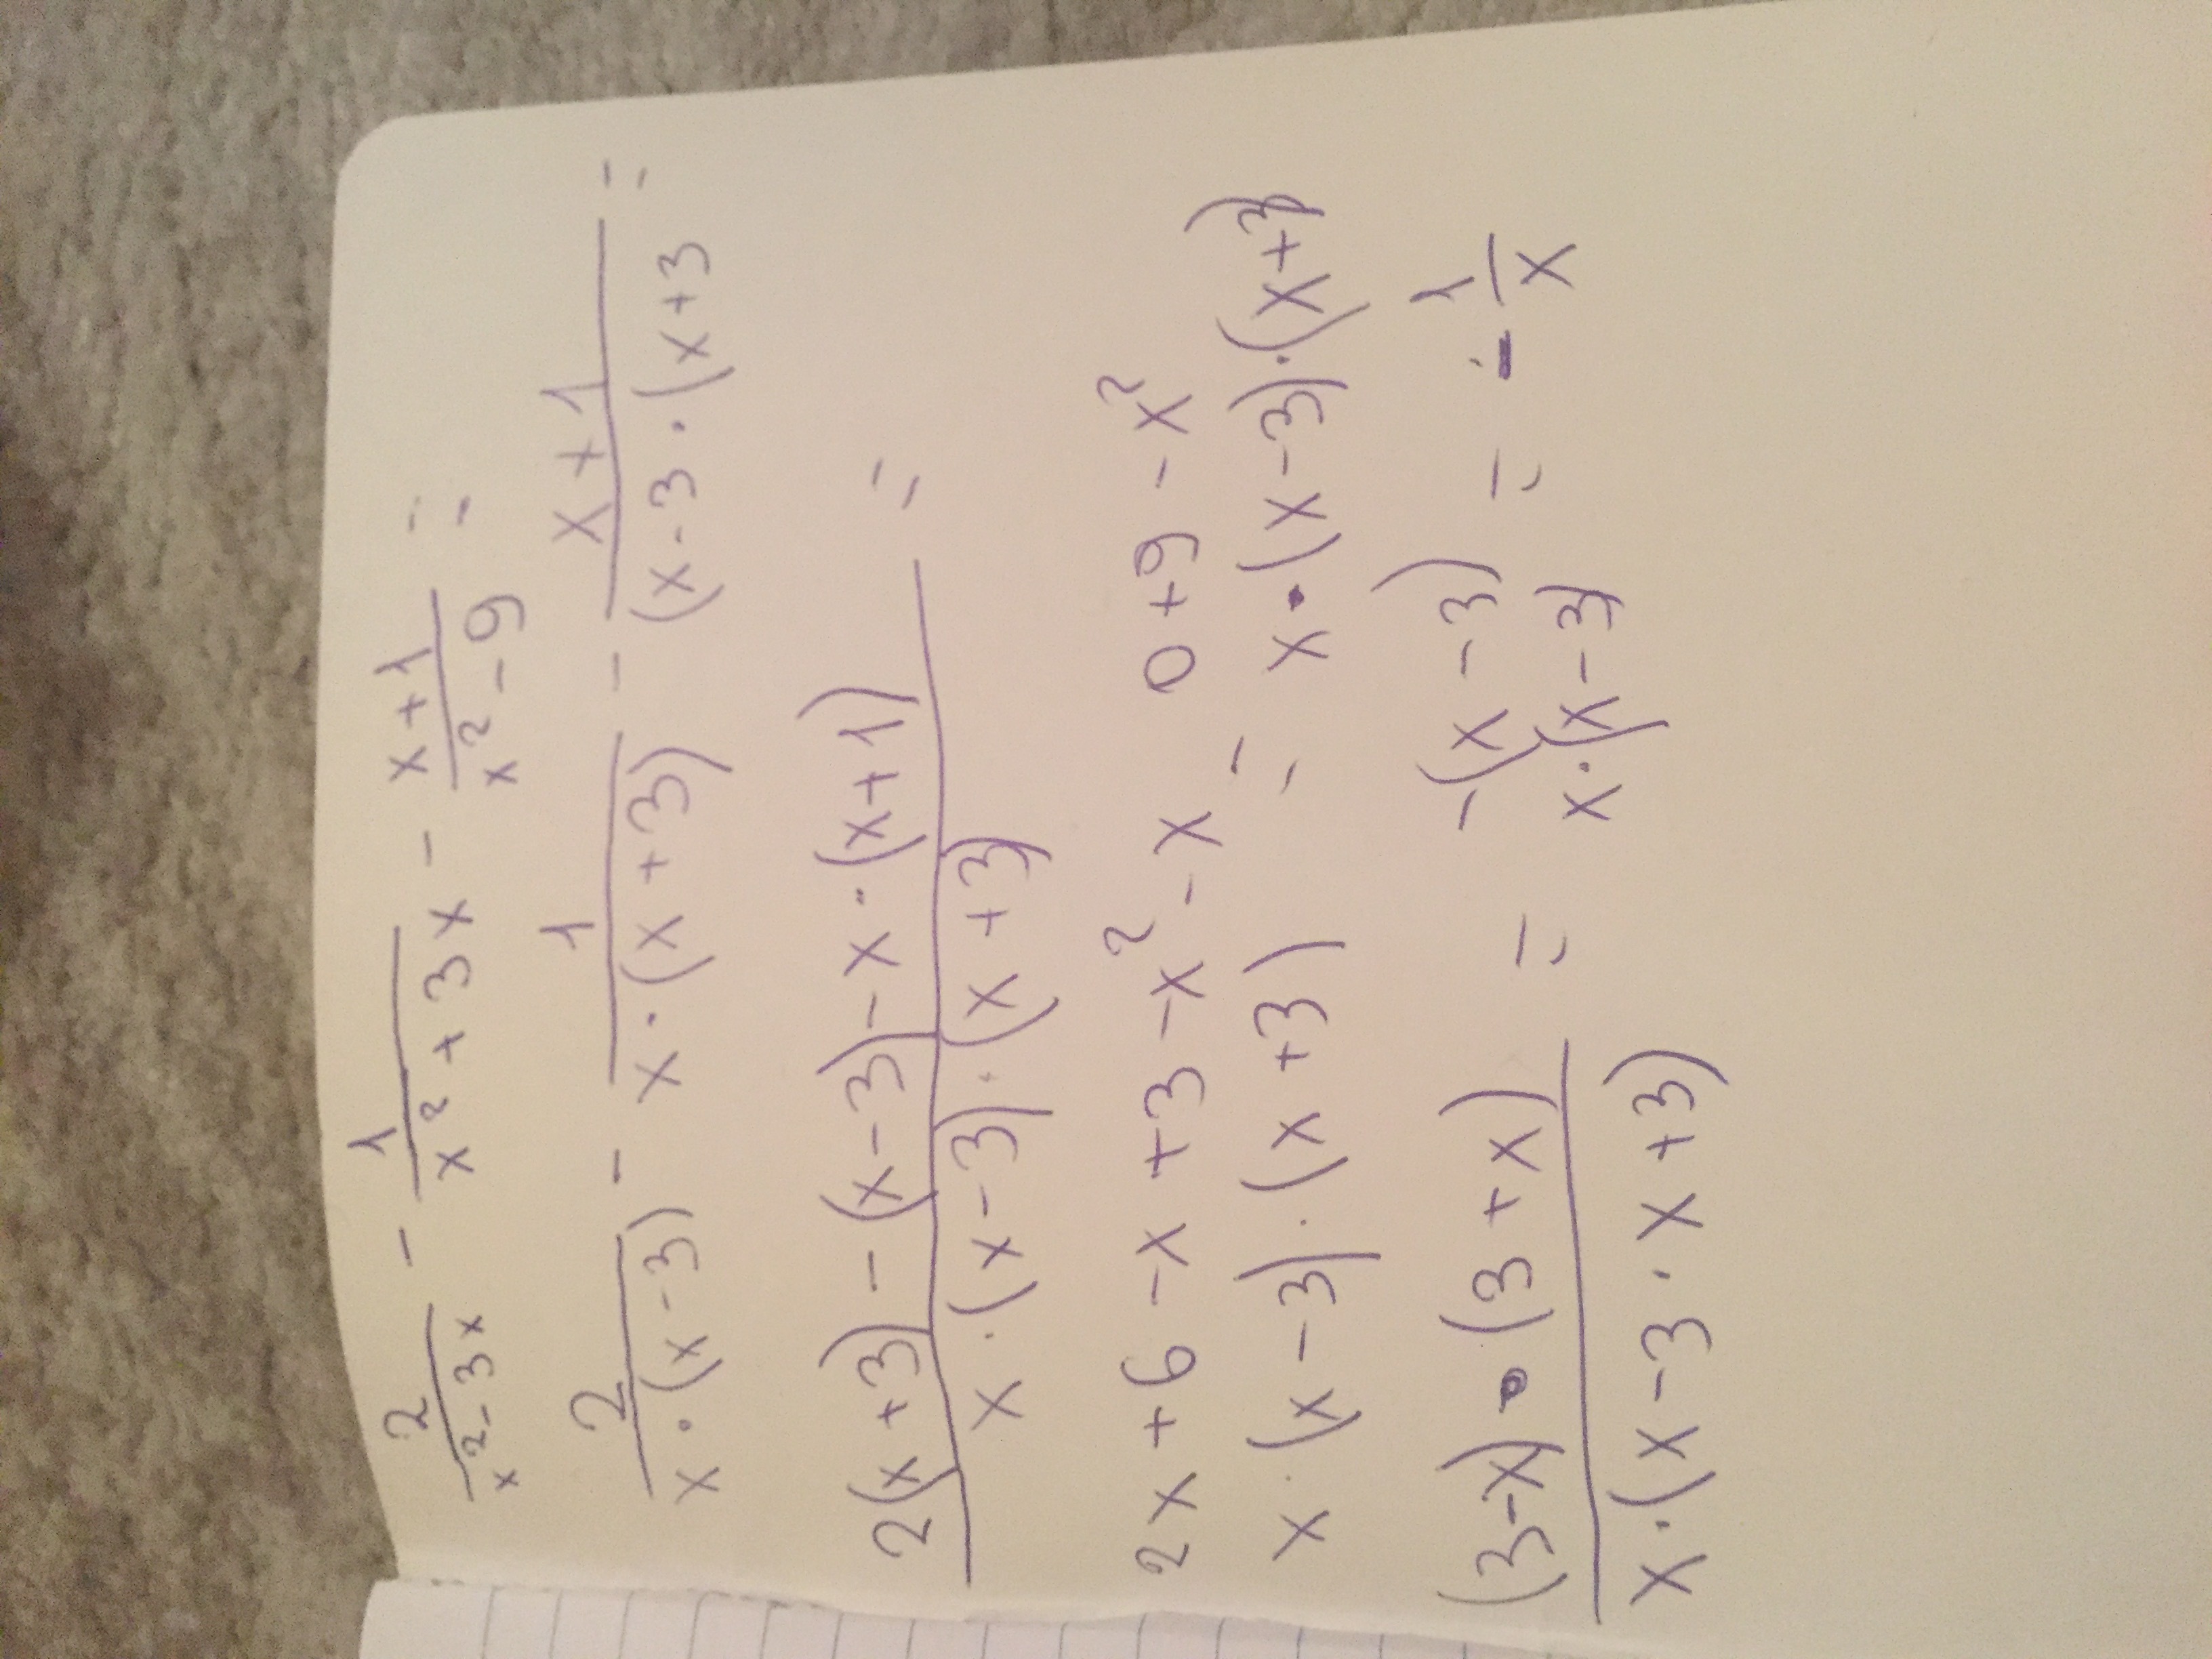 2/(x² - 3x) - 1/(x² + 3x) - (x + 1)/(x² - 9) =
2/(x · (x - 3)) - 1/(x · (x + 3)) - (x + 1)/((x - 3 · (x + 3) =
2(x + 3) - (x - 3) - x · (x + 1)
x · (x - 3) · (x + 3) =
2x + 6 - x + 3 - x² - x 0 + 9 - x²
x · (x - 3) · (x + 3) = x · (x - 3) · (x + 3)
(3 - x) · (3 + x) - (x - 3) 1
x · (x - 3 · x + 3) = x · (x - 3) = - x